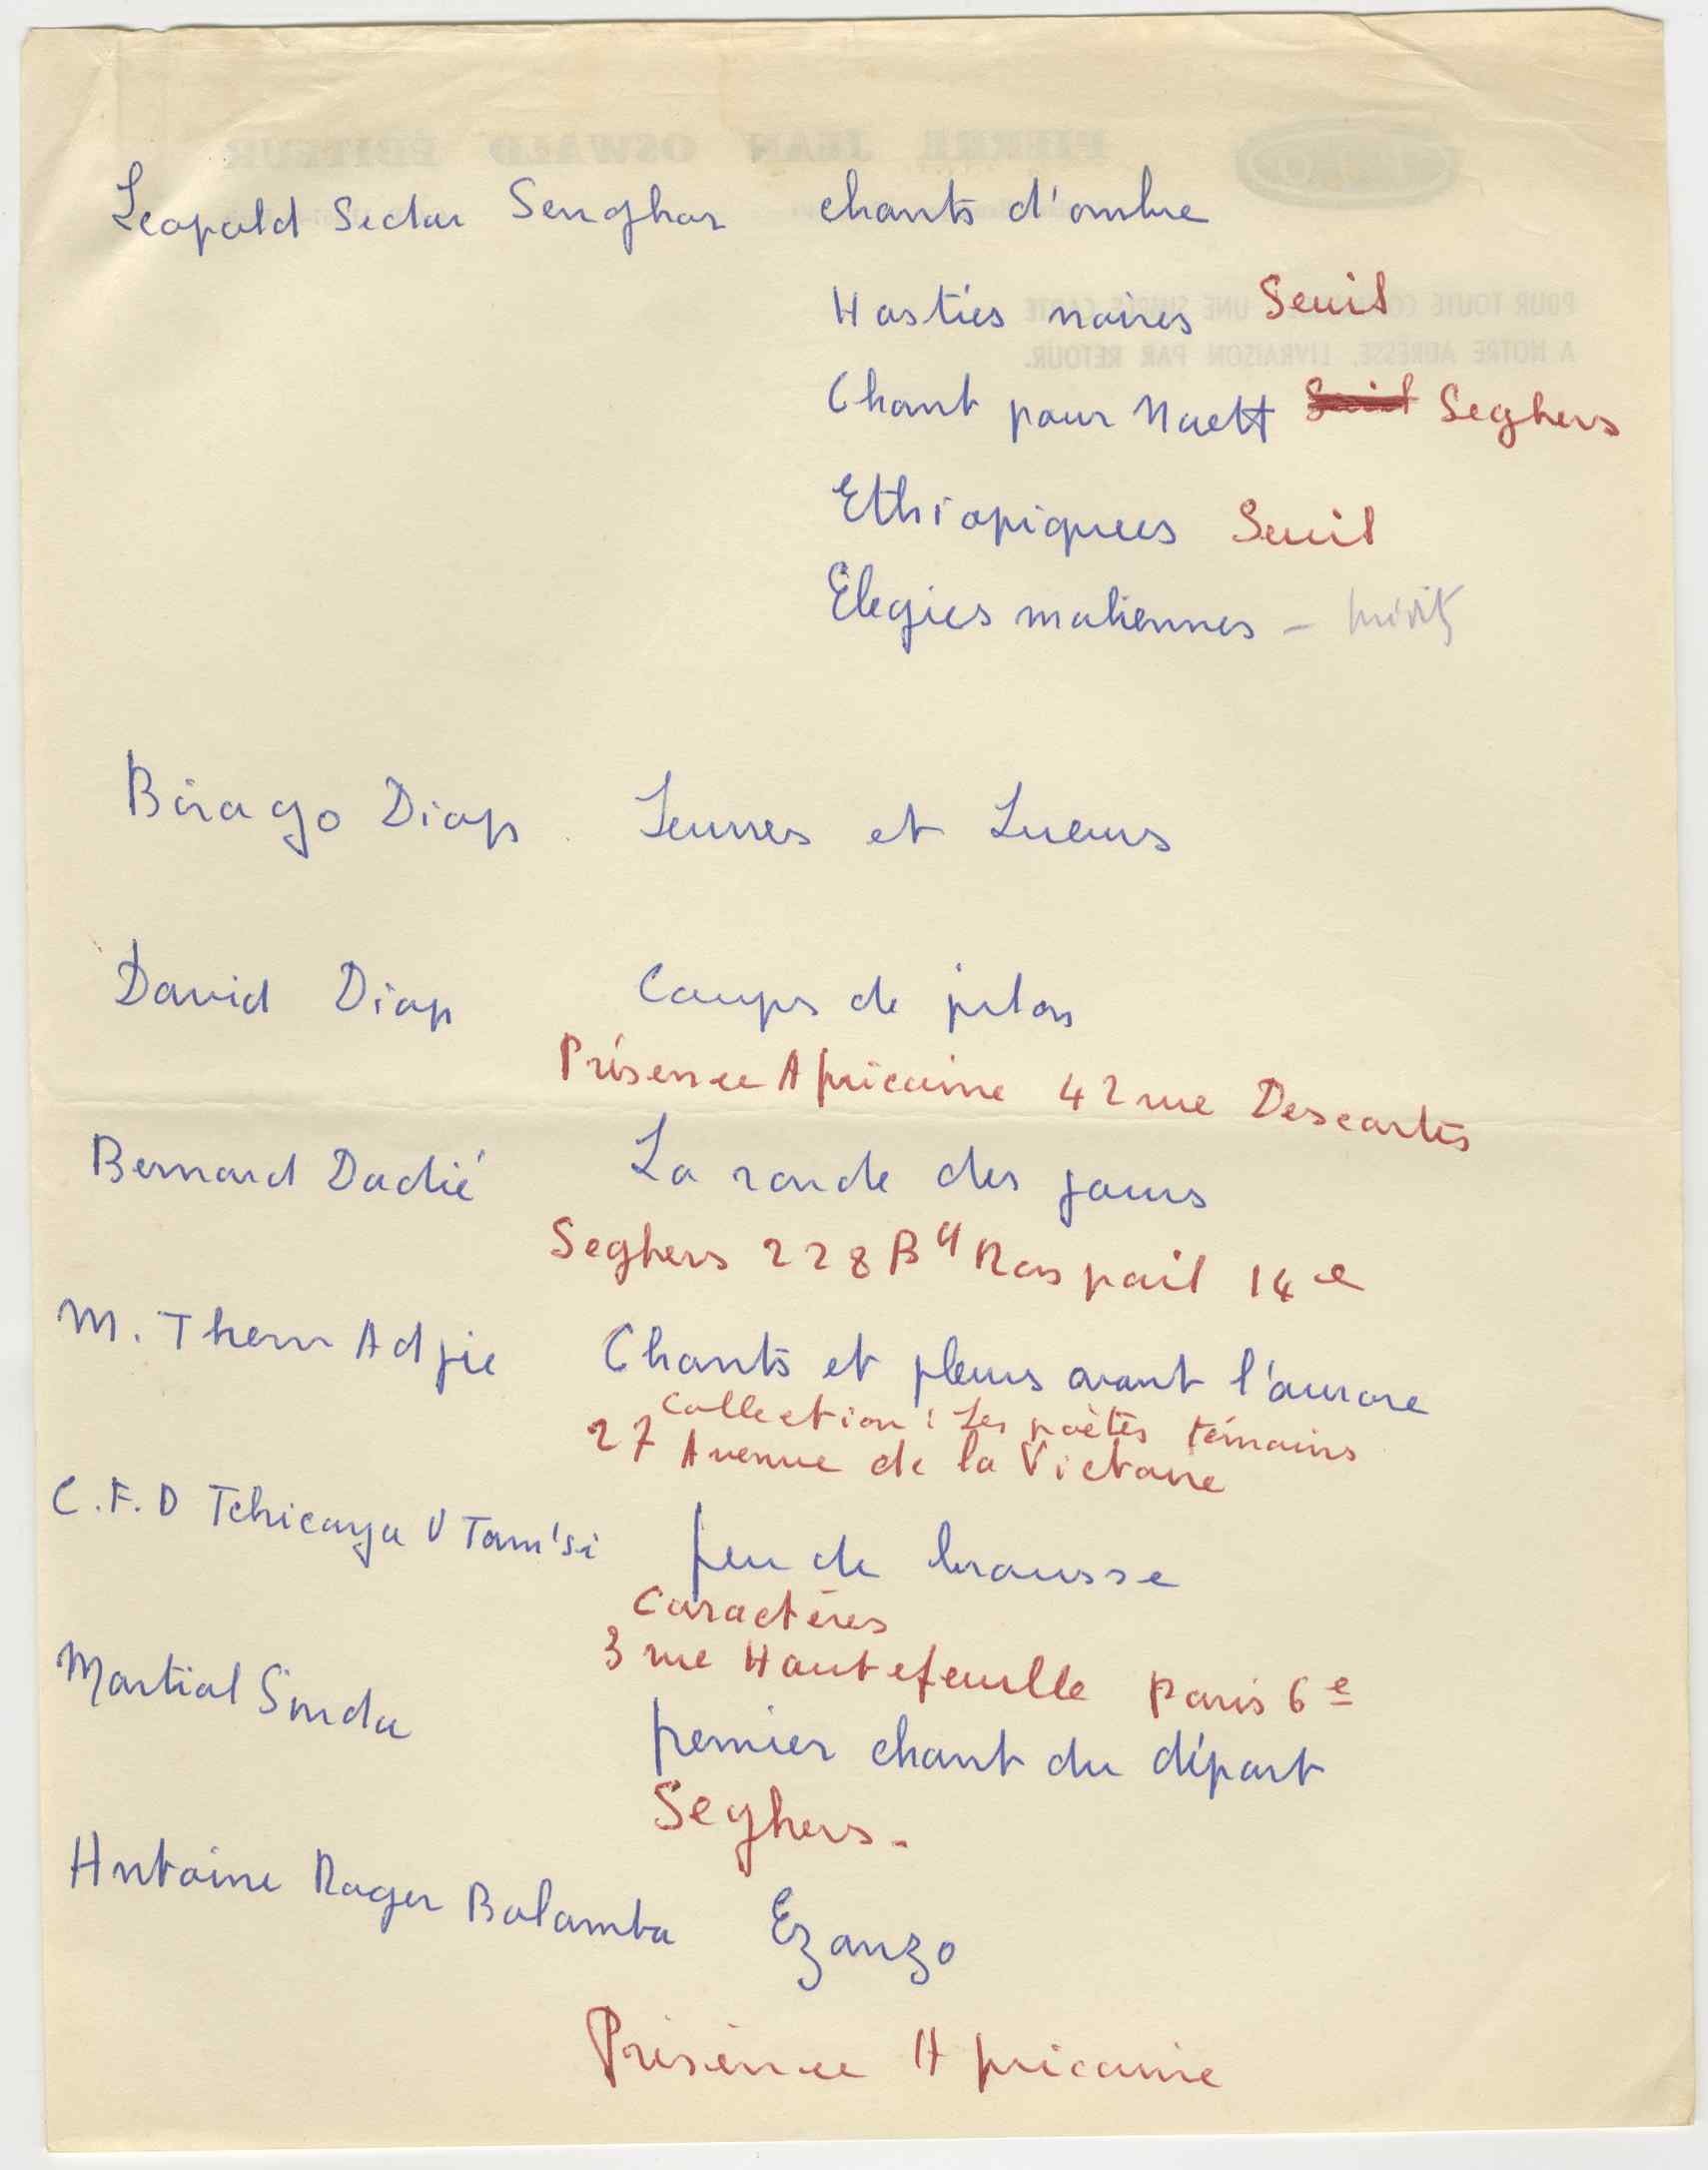 Leopold Sedar Senghor chants d'ombre
Hosties noires Seuil
Chant pour Naett Seuil Seghers
Ethiopiques Seuil
Elegies maliennes - inédit
Birago Diop Leurres et Lueurs
David Diop Coups de pilon
Présence Africaine 42 rue Descartes
Bernard Dadié La ronde des jours
Seghers 228 Bd Raspail 14e
M. Chants et pleurs avant l'aurore
Collection : Les poètes témoins
27 Avenue de la Victoire
C.F.D Tchicaya U Tam'si feu de brousse
Caractères
3 rue Hautefeuille Paris 6e
Martial Sinda premier chant du départ
Seghers.
Antoine Roger Bolamba Ezanzo
Présence Africaine
PIERRE JEAN OSWALD EDITEUR
POUR TOUTE UNE SIMPLE CARTE
A NOTRE ADRESSE, LIVRAISON PAR RETOUR.